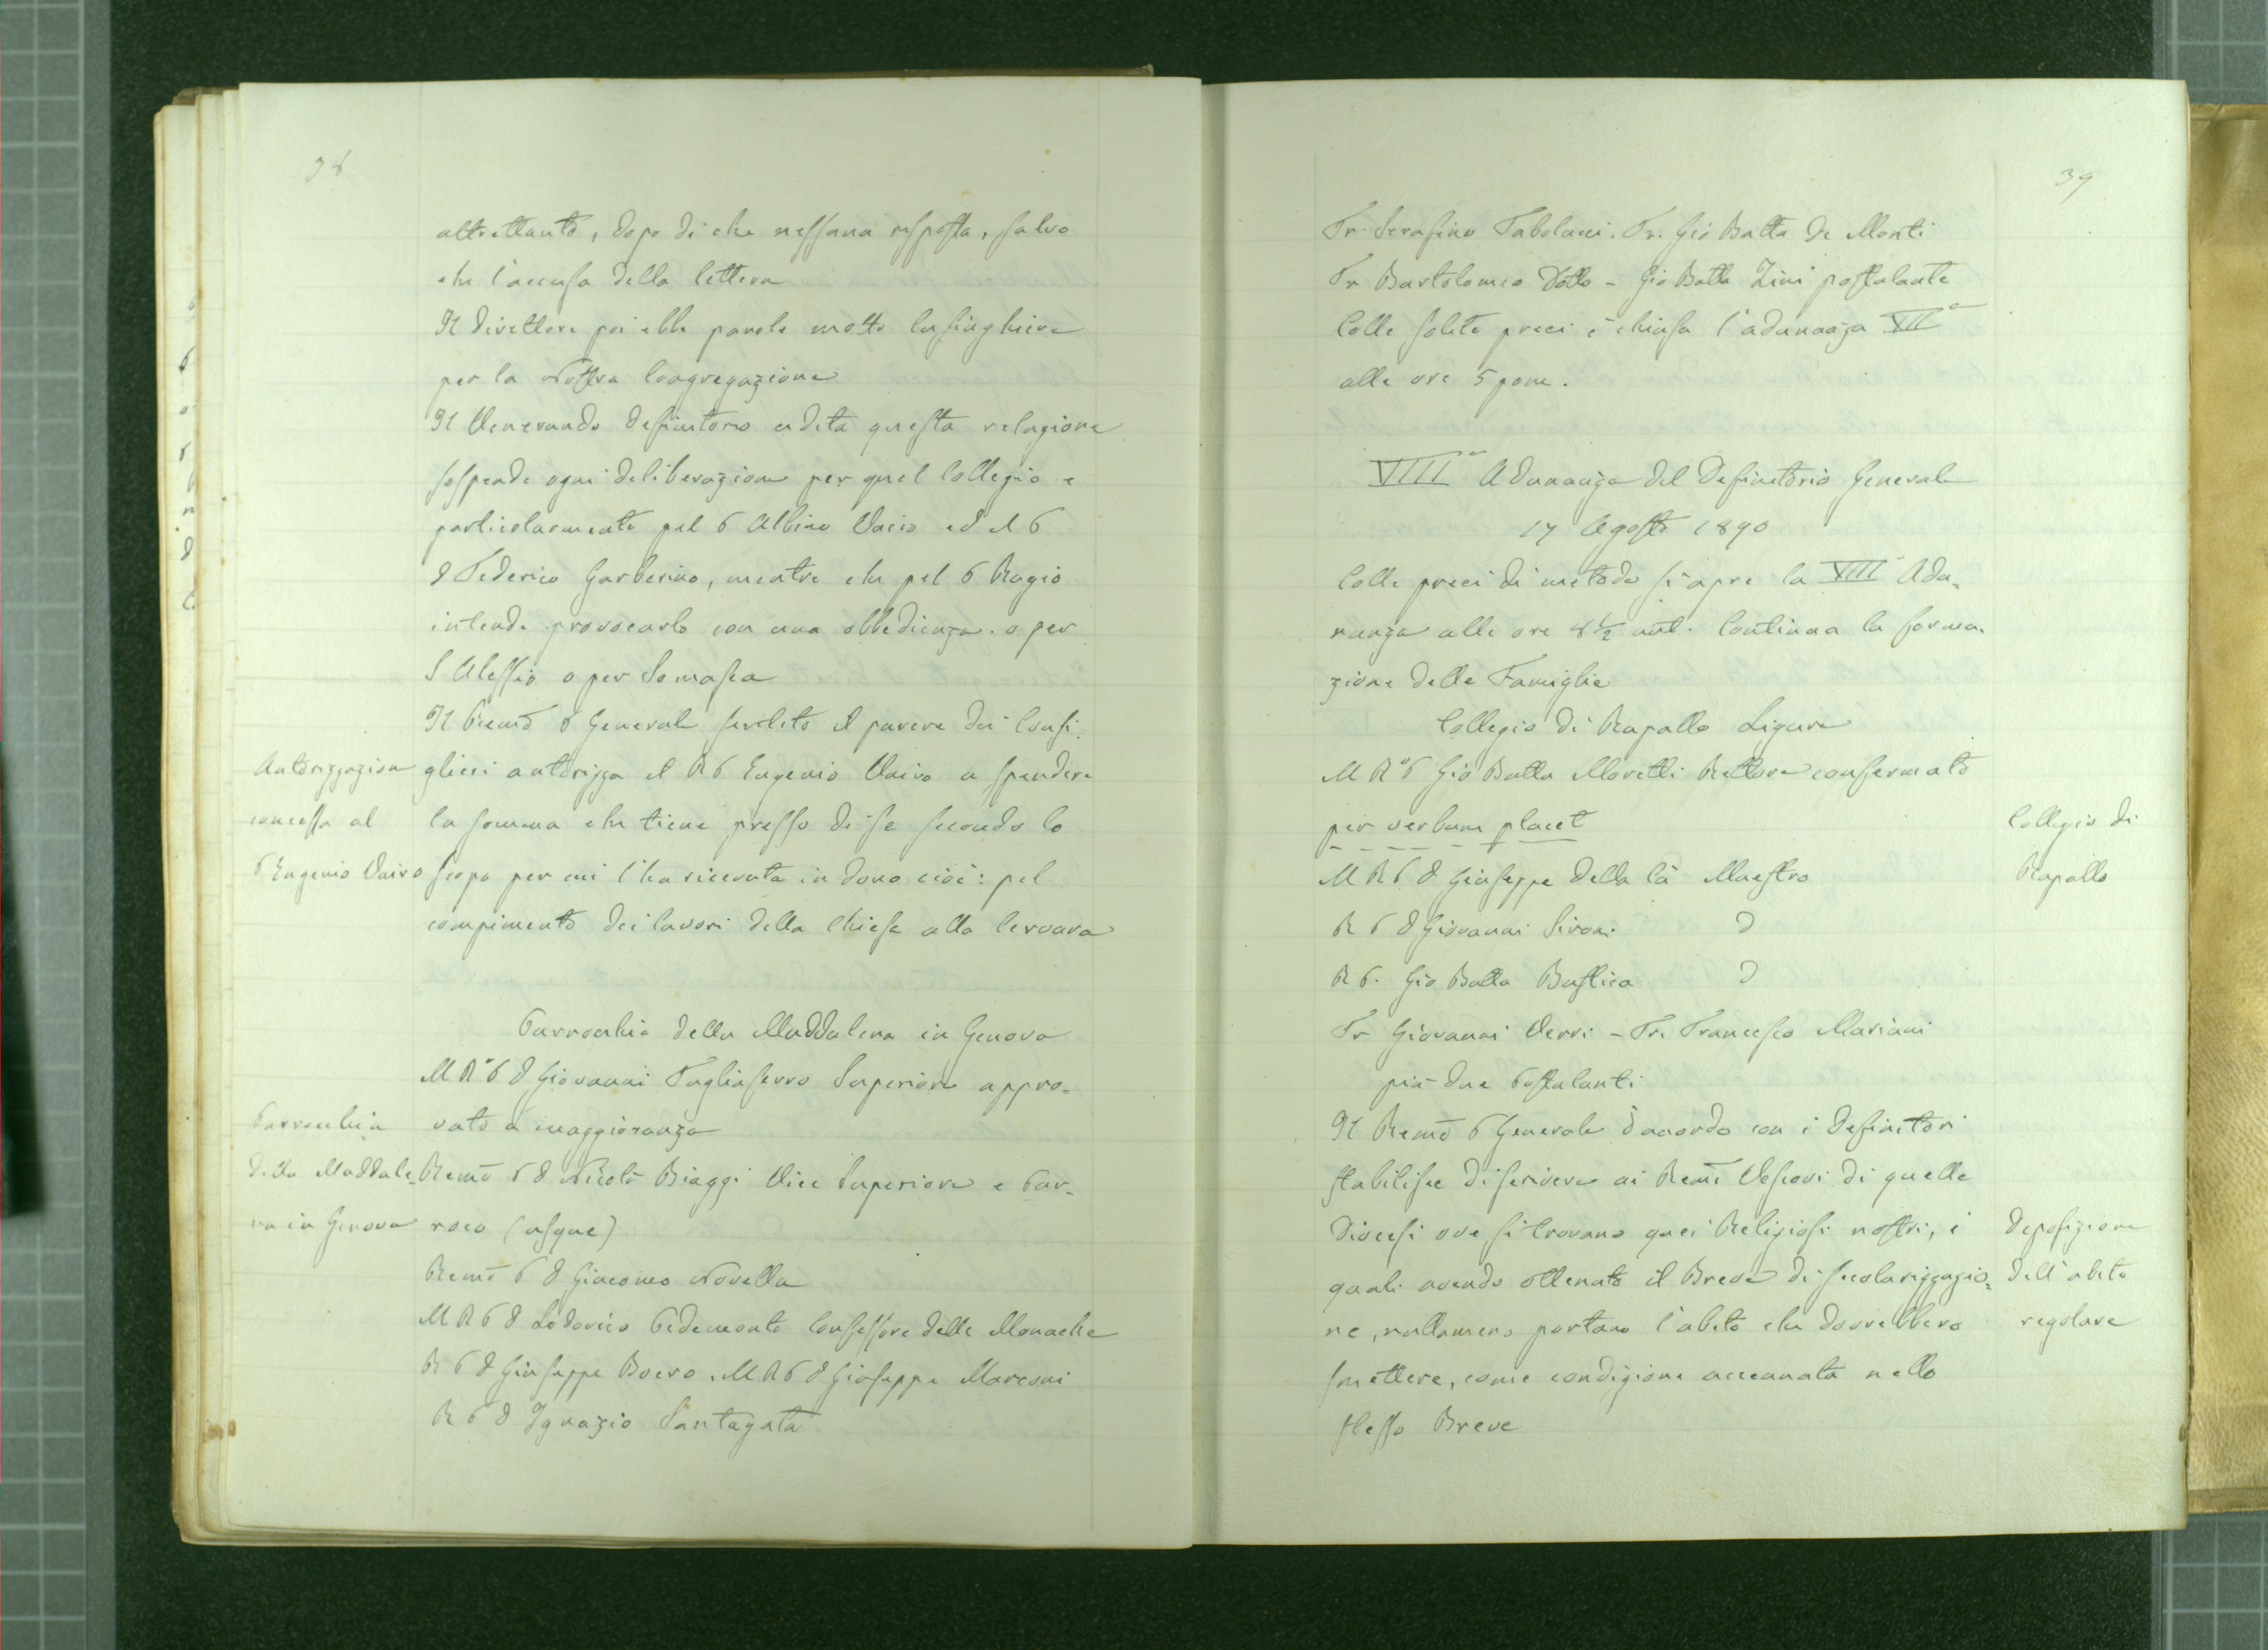 38
altrettanto, dopo di che nessuna risposta, salvo
che l'accusa della lettera
Il Direttore poi ebbe parole molto lusinghiere
per la Nostra Congregazione
Il Venerando Definitorio udita questa relazione
sospende ogni deliberazione per quel Collegio e
particolarmente pel P Albino Vairo ed il P
D Federico Garberino, mentre che pel P Ragio
intende provocarlo con una obbedienza o per
S Alessio o per Somasca
Il Remo P Generale sentito il parere dei Consi
Autorizzazione
concessa al
P Eugenio Vairo
glieri autorizza il R P Eugenio Vairo a spendere
la somma che tiene presso di se secondo lo
scopo per cui l'ha ricevuta in dono cioè: pel
compimento dei lavori della Chiesa alla Cervara
Parrocchia della Maddalena in Genova
M R P D Giovanni Tagliaferro Superiore appro=
Parrocchia
della Maddale=
na in Genova
vato a maggioranza
Remo P D Nicolò Biaggi Vice Superiore e Par=
roco (usque)
Remo P D Giacomo Novella
M R P D Lodovico Pedemonte Confessore delle Monache
R P D Giuseppe Boero. M R P D Giuseppe Marconi
R P D Ignazio Santagata
39
Fr. Serafino Tabolacci. Fr. Gio Batta De Monti
Fr Bartolomeo Dotto - Gio Batta Zini postulante
Colle solite preci è chiusa l'adunanza VIIa
alle ore 5 pom.
VIIIa Adunanza del Definitorio Generale
17 Agosto 1890
Colle preci di metodo si apre la VIII Adu=
nanza alle ore 8 1/2 ant. Continua la forma=
zione delle Famiglie
Collegio di Rapallo Ligure
M R P Gio Batta Moretti Rettore confermato
per verbum placet
Collegio di
Rapallo
M R P D Giuseppe Della Cà Maestro
R P D Giovanni Sironi D
R P. Gio Batta Bustica D
Fr Giovanni Verri - Fr. Francesco Mariani
più due Postulanti
Il Remo P Generale d'accordo con i Definitori
stabilisce di scrivere ai Remi Vescovi di quelle
Diocesi ove si trovano quei Religiosi nostri, i
quali avendo ottenuto il Breve di secolarizzazio=
ne, nullameno portano l'abito che dovrebbero
smettere, come condizione accennata nello
stesso Breve
Deposizione
dell'abito
regolare